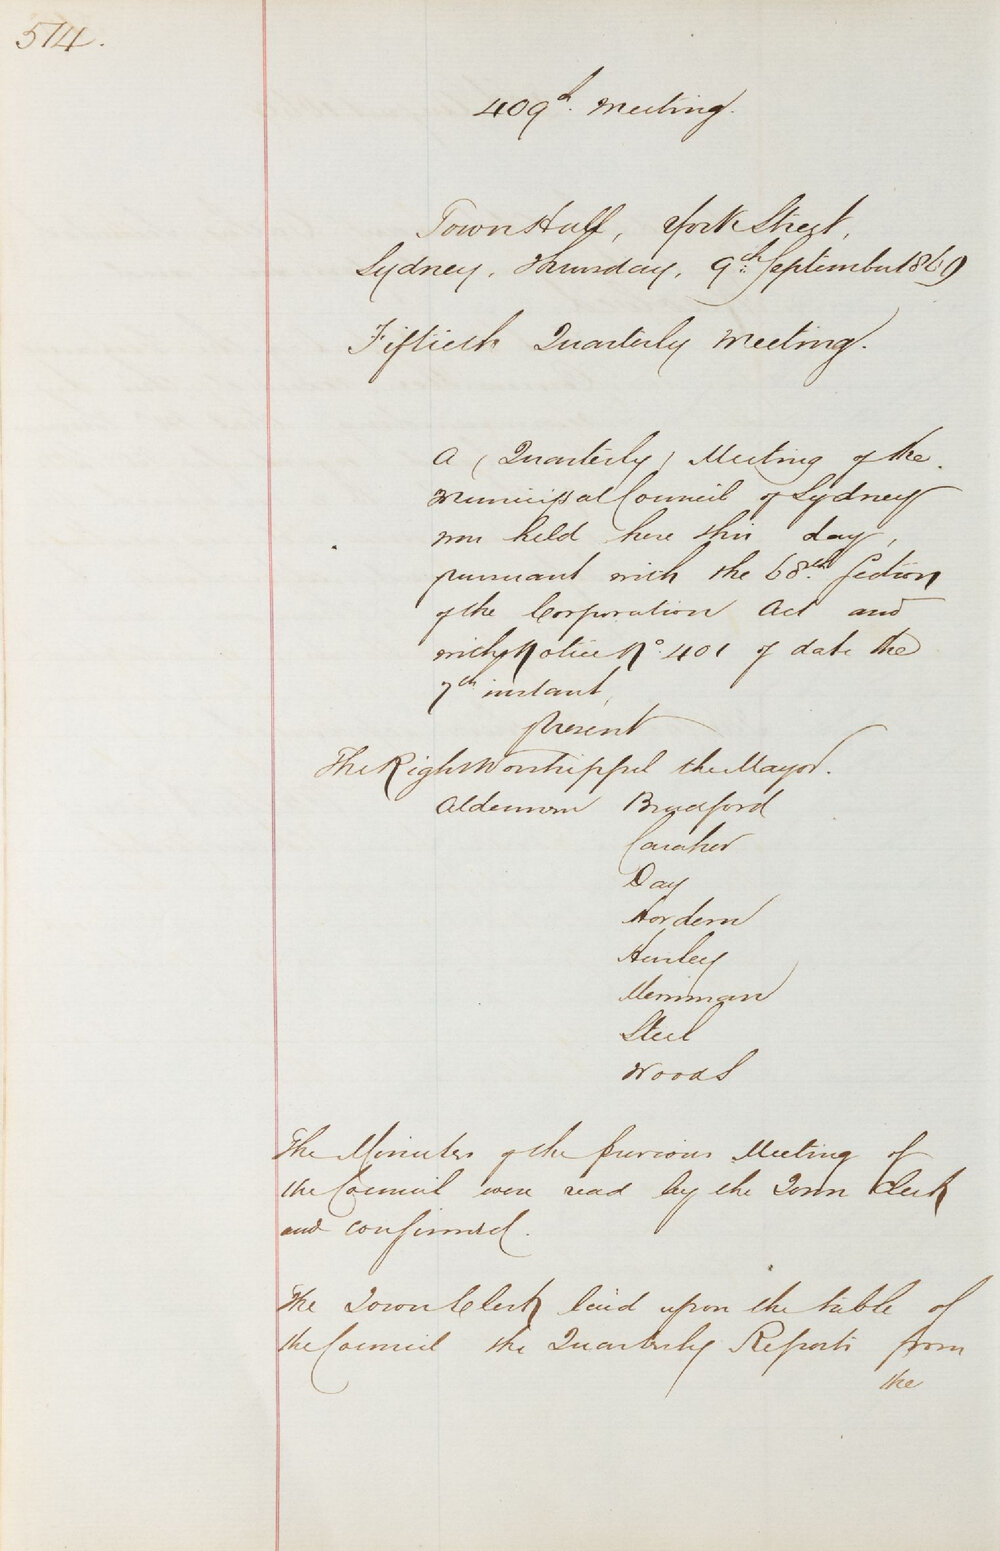 514.
409th. Meeting.
Town Hall, York Street,
Sydney, Thursday, 9th September 1869
Fiftieth Quarterly Meeting.
A (Quarterly) Meeting of the
Municipal Council of Sydney
was held here this day,
pursuant with the 68th. Section
of the Corporation Act and
with Notice No. 401 of date the
7th instant,
present
The Right Worshipful the Mayor.
Aldermen Bradford
Caraher
Day
Hordern
Hurley
Merriman
Steel
Woods
The Minutes of the previous Meeting of
the Council were read by the Town Clerk
and confirmed.
The Town Clerk laid upon the table of
the Council the Quarterly Reports from
the